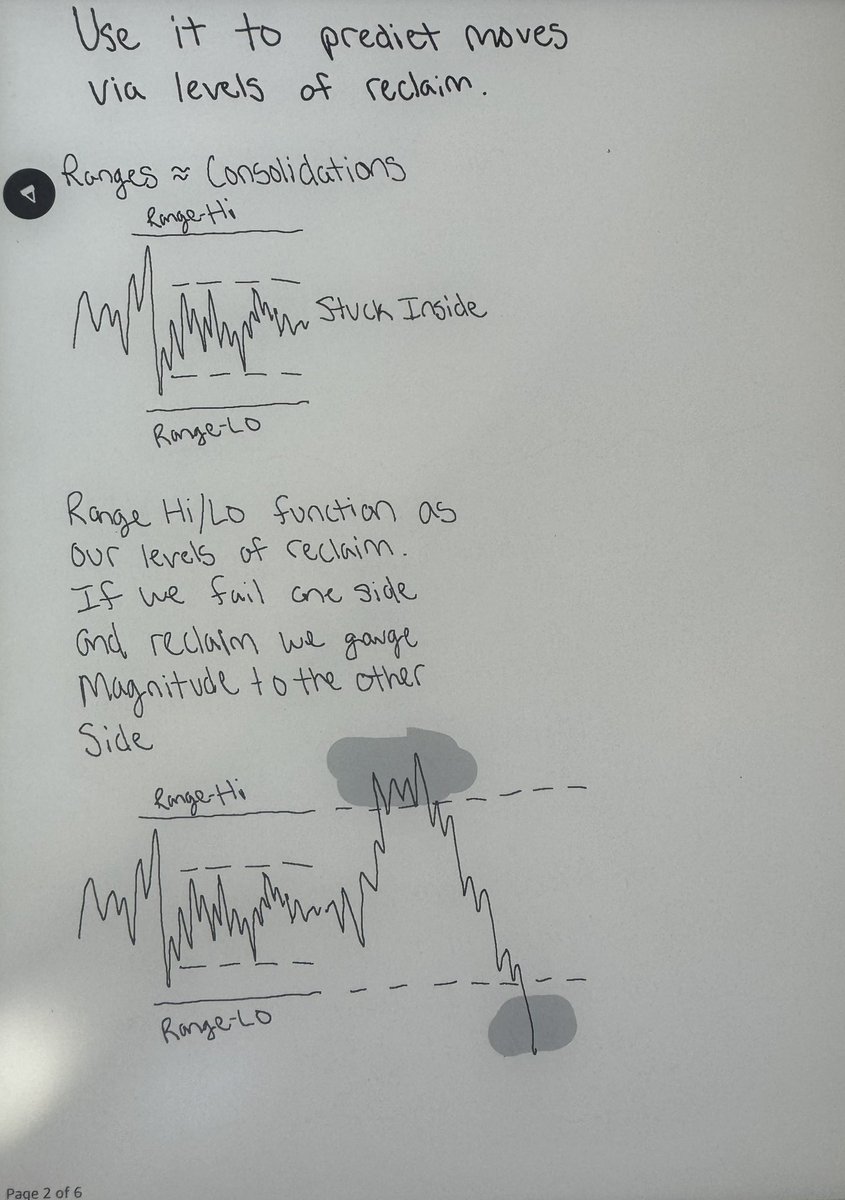 Use it to predict moves
via levels of reclaim.
Ranges ≈ Consolidations
Range-Hi
Stuck Inside
Range-Lo
Range Hi/Lo function as
our levels of reclaim.
If we fail one side
and reclaim we gauge
Magnitude to the other
Side
Range-Hi
Range-Lo
Page 2 of 6